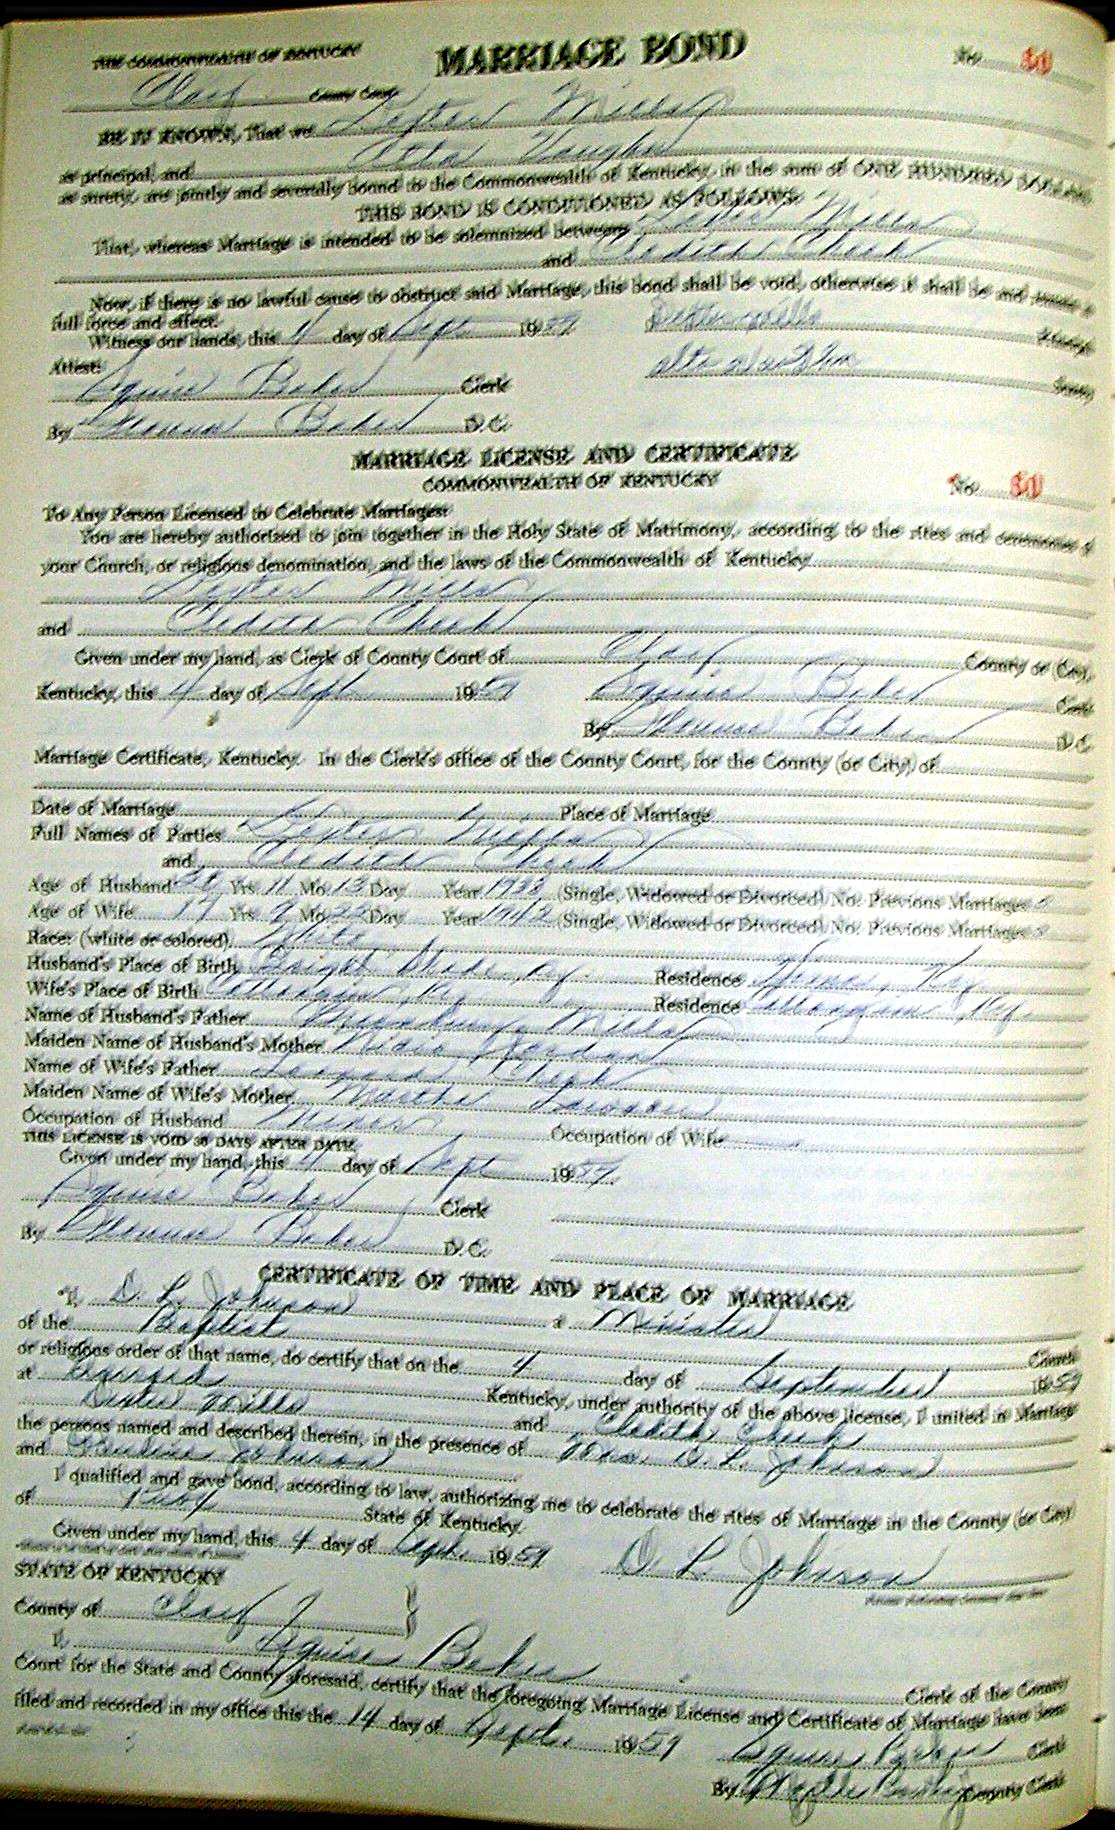 THE COMMONWEALTH OF KENTUCKY
MARRIAGE BOND
No. 50
Clay County Court
BE IT KNOWN, That we Lester Mills
as principal, and
as surety, are jointly and severally bound to the Commonwealth of Kentucky, in the sum of ONE HUNDRED DOLLARS
THIS BOND IS CONDITIONED AS FOLLOWS:
That, whereas Marriage is intended to be solemnized between Lester Mills
and Cledith Cheek
Now, if there is no lawful cause to obstruct said Marriage, this bond shall be void, otherwise it shall be and remain in
full force and effect.
Witness our hands, this 4 day of Sept 1959
Attest:
Squire Baker Clerk
By Baker D.C.
MARRIAGE LICENSE AND CERTIFICATE
COMMONWEALTH OF KENTUCKY
No. 50
To Any Person Licensed to Celebrate Marriages:
You are hereby authorized to join together in the Holy State of Matrimony, according to the rites and ceremonies of
your Church, or religious denomination, and the laws of the Commonwealth of Kentucky
Lester Mills
and Cledith Cheek
Given under my hand, as Clerk of County Court of Clay County or (City),
Kentucky, this 4 day of Sept 1959 Squire Baker Clerk
By Baker D.C.
Marriage Certificate, Kentucky. In the Clerk's office of the County Court, for the County (or City) of
Date of Marriage Place of Marriage
Full Names of Parties Lester Mills
and Cledith Cheek
Age of Husband Yrs. 11 Mo. 13 Day Year (Single, Widowed or Divorced) No. Previous Marriages
Age of Wife 17 Yrs. Mo. Day Year 1942 (Single, Widowed or Divorced) No. Previous Marriages
Race: (white or colored) White
Husband's Place of Birth Bright Shade, Ky. Residence Ky.
Wife's Place of Birth Ky Residence Ky.
Name of Husband's Father Mills
Maiden Name of Husband's Mother
Name of Wife's Father Cheek
Maiden Name of Wife's Mother Martha
Occupation of Husband Miner Occupation of Wife
THIS LICENSE IS VOID 30 DAYS AFTER DATE.
Given under my hand, this 4 day of Sept 1959.
Squire Baker Clerk
By Baker D.C.
CERTIFICATE OF TIME AND PLACE OF MARRIAGE
"I, D. L. Johnson
of the Baptist a Minister Church
or religious order of that name, do certify that on the 4 day of September 1959
at Kentucky, under authority of the above license, I united in Marriage
Lester Mills and Cledith Cheek
the persons named and described therein, in the presence of Mrs. D. L. Johnson
and Pauline Johnson
I qualified and gave bond, according to law, authorizing me to celebrate the rites of Marriage in the County (or City)
of State of Kentucky.
Given under my hand, this 4 day of Sept. 1959 D L Johnson
STATE OF KENTUCKY
County of Clay
I, Squire Baker Clerk of the County
Court for the State and County aforesaid, certify that the foregoing Marriage License and Certificate of Marriage have been
filed and recorded in my office this the 14 day of Sept. 1959
Squire Baker Clerk
By County Clerk